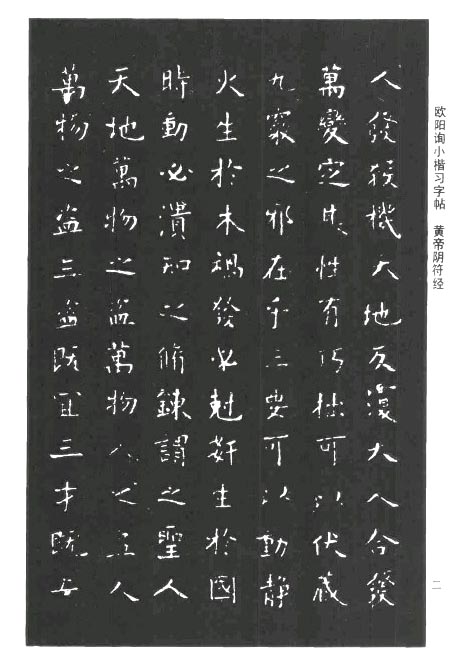 欧阳询小楷习字帖 黄帝阴符经
人發殺機天地反覆天人合發
萬變定基性有巧拙可以伏藏
九竅之邪在乎三要可以動靜
火生於木禍發必尅奸生於國
時動必潰知之脩鍊謂之聖人
天地萬物之盜萬物人之盜人
萬物之盜三盜既宜三才既安
二